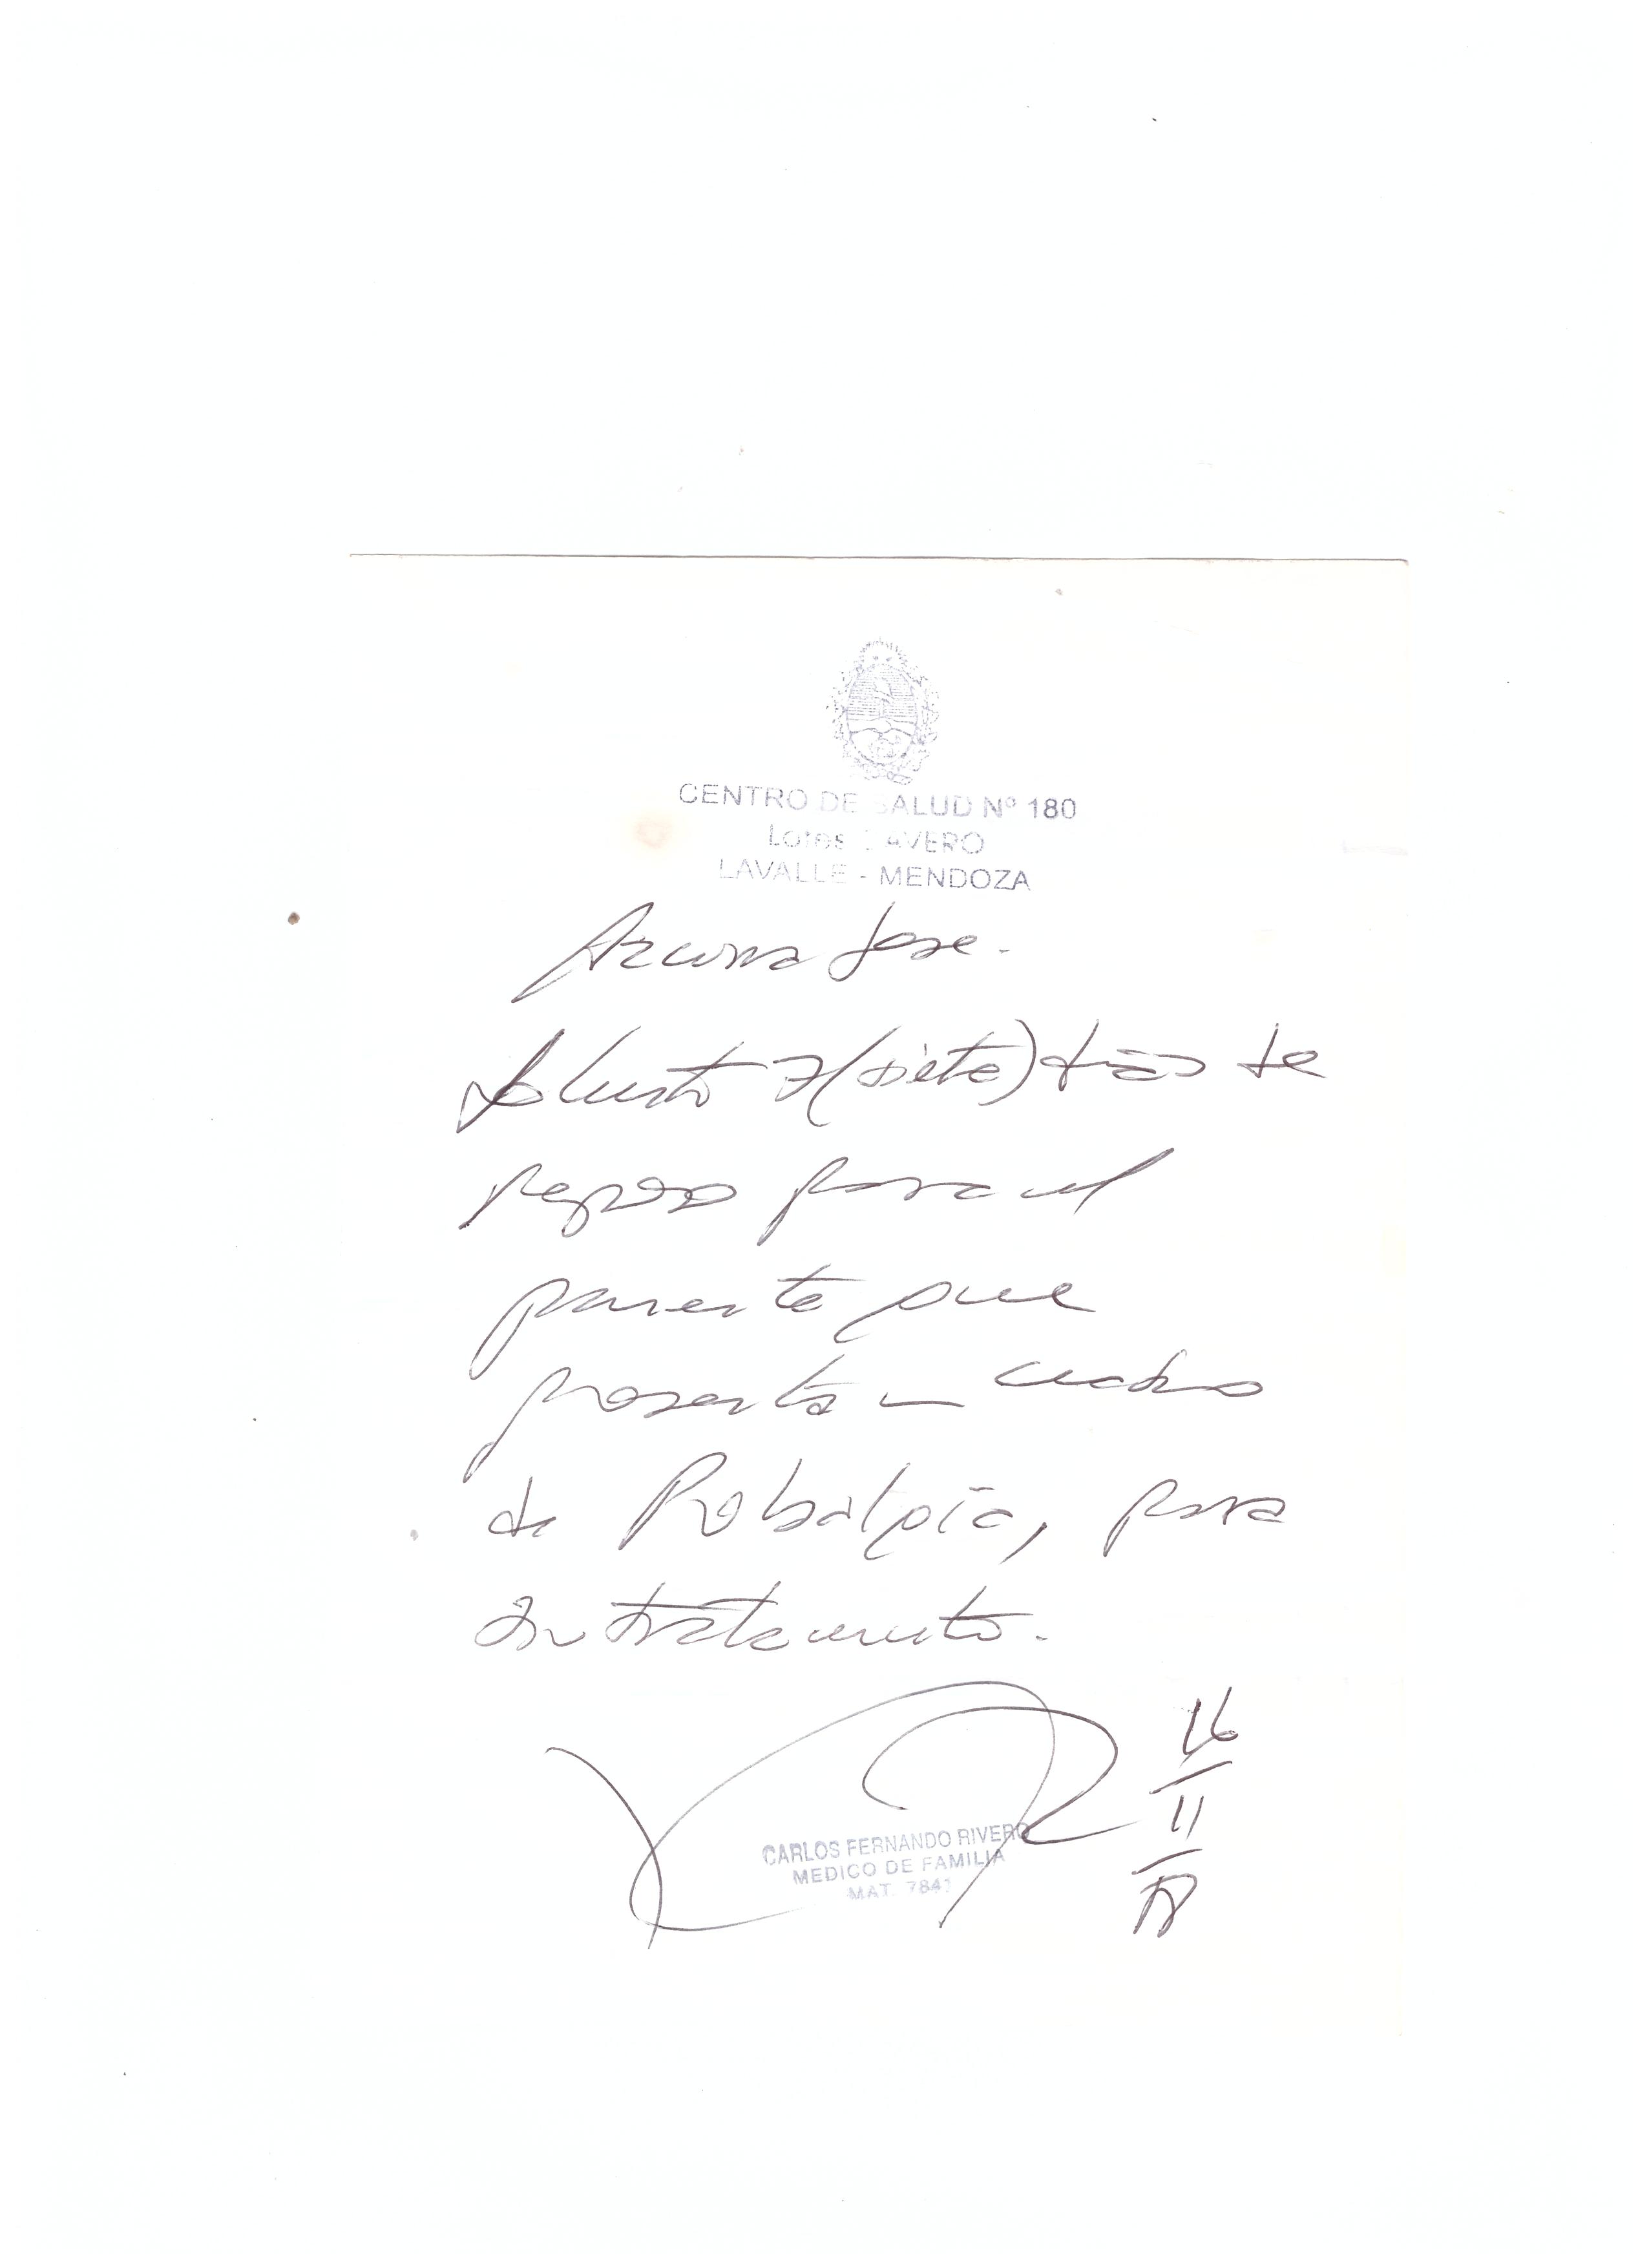 CENTRO DE SALUD Nº 180
Lotes CAVERO
LAVALLE - MENDOZA
Azcurra Jose.
Solicito 7 (siete) días de
reposo para el
paciente que
presenta un cuadro
de Lobalgia, para
su tratamiento.
16
11
CARLOS FERNANDO RIVERO
MEDICO DE FAMILIA
MAT. 7841